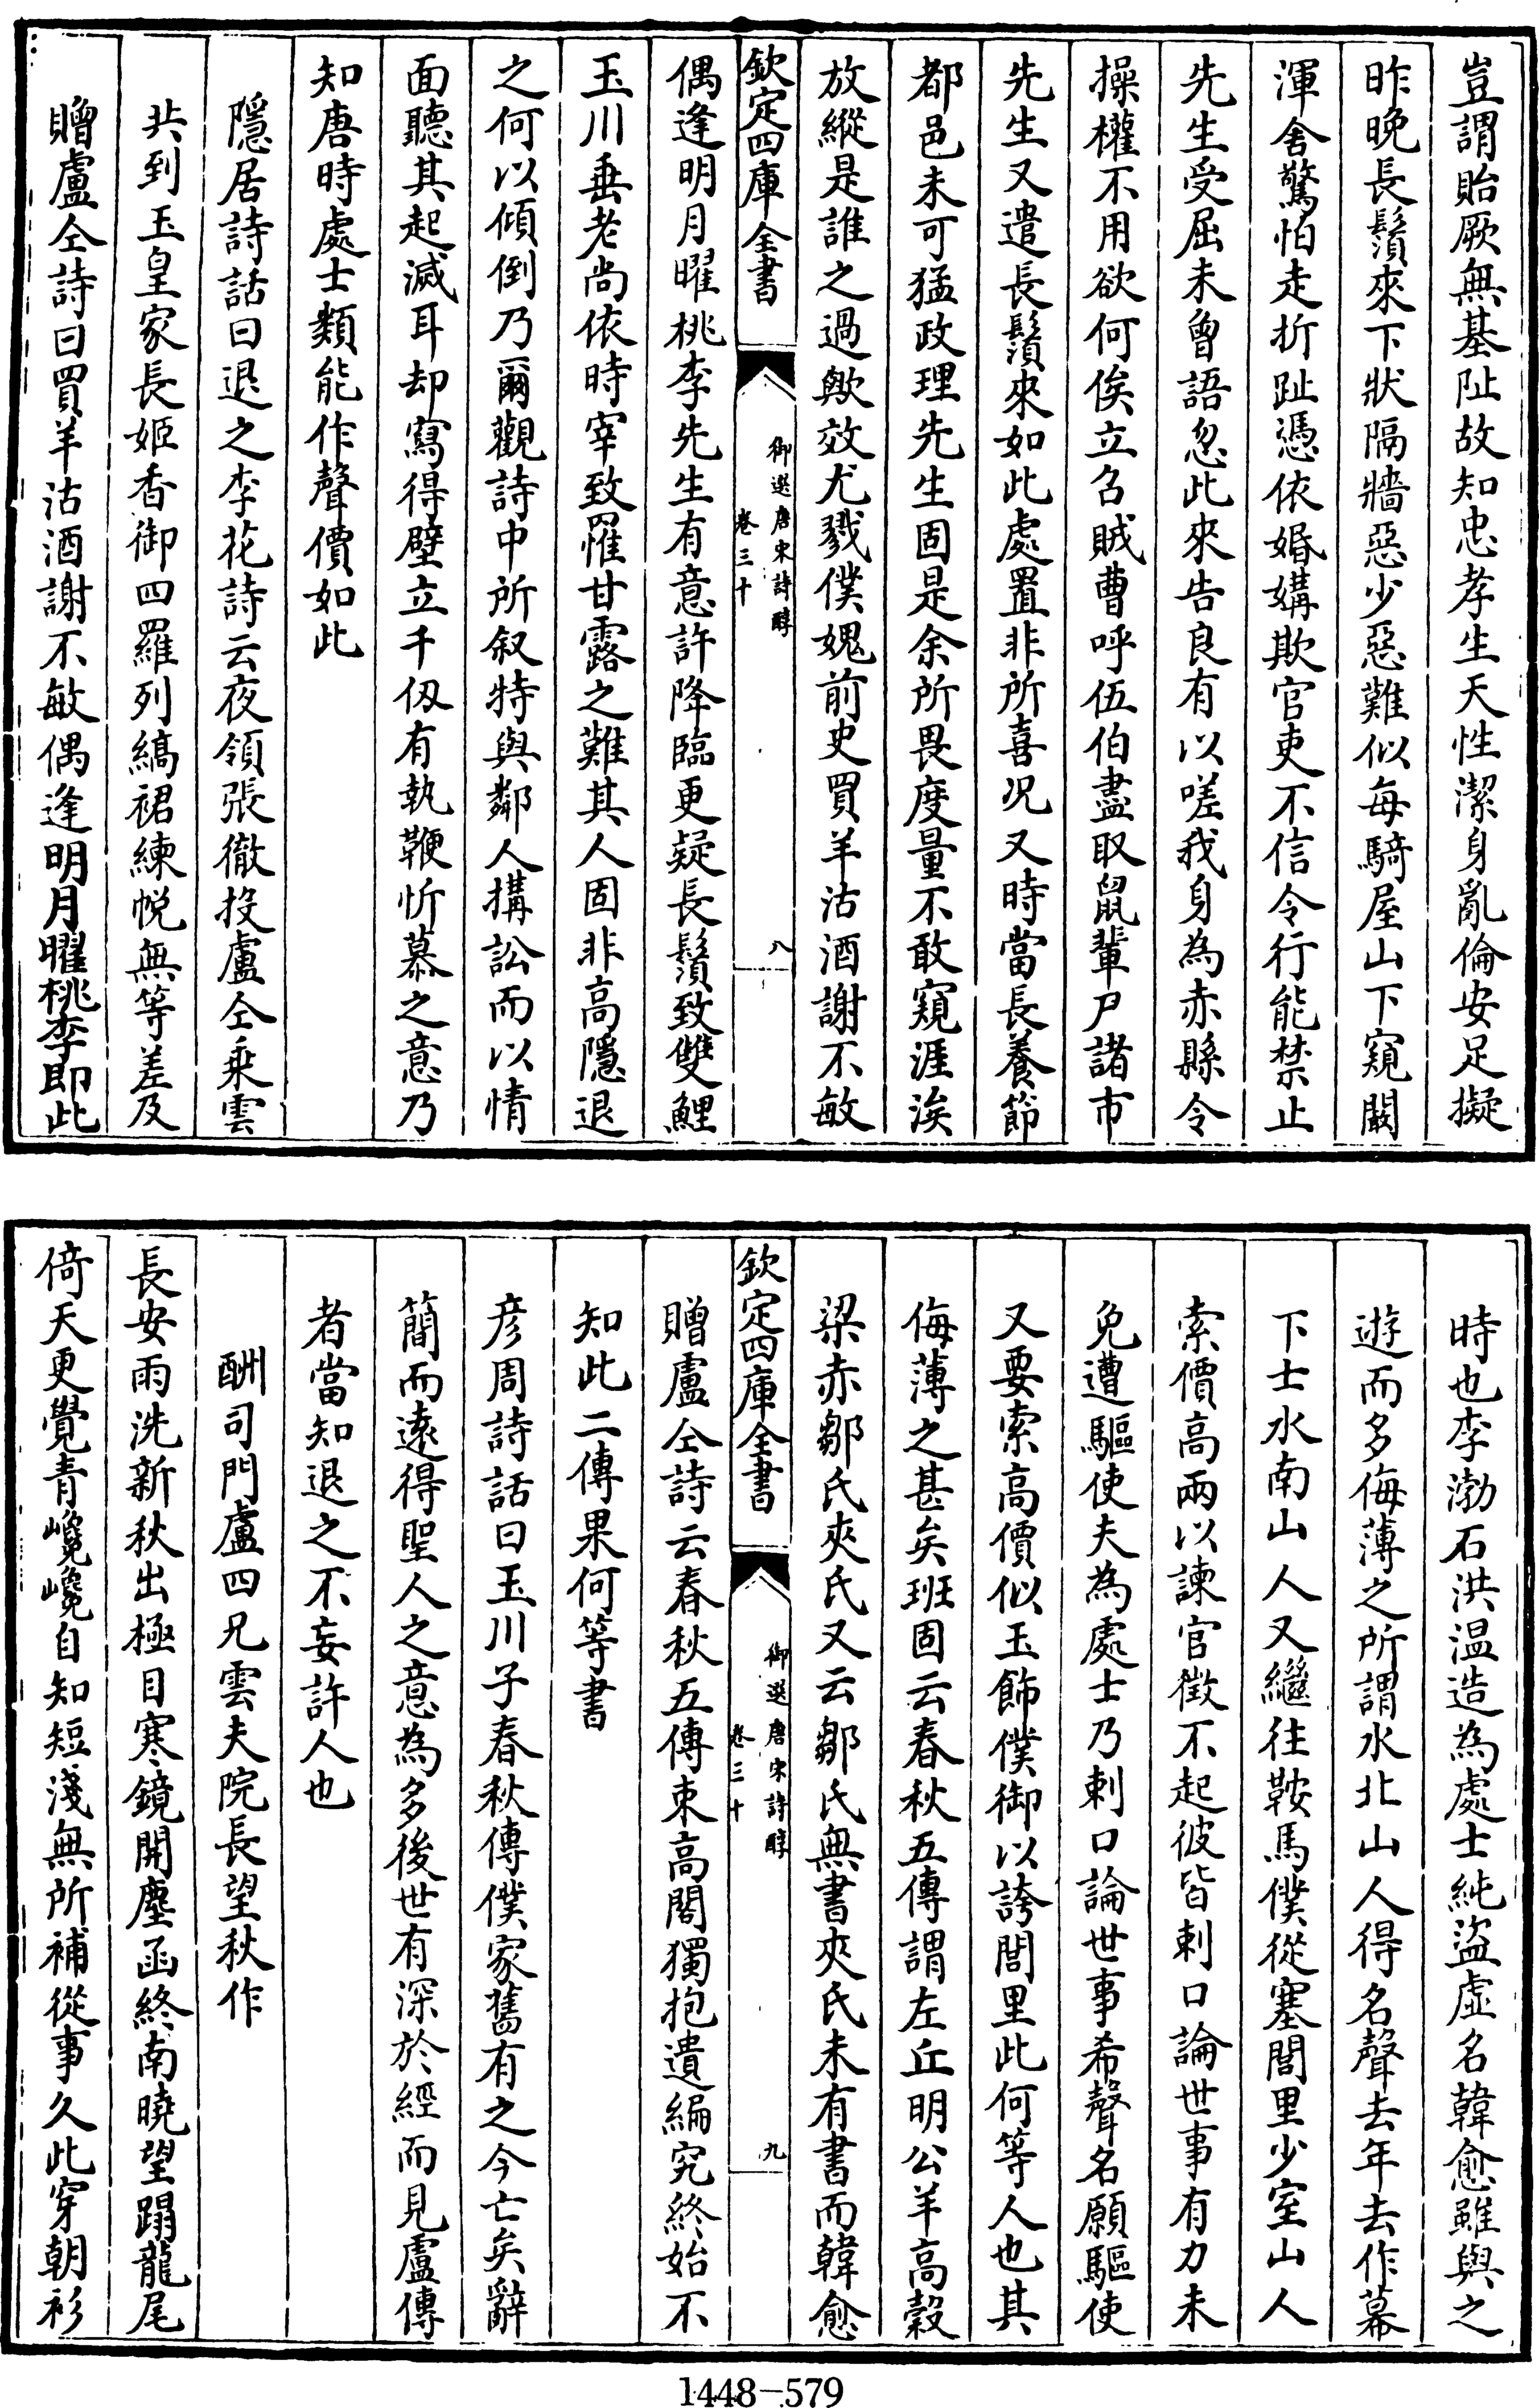 豈謂貽厥無基阯故知忠孝生天性潔身亂倫安足擬
昨晚長鬚來下狀隔牆惡少惡難似每騎屋山下窺闞
渾舍驚怕走折趾憑依婚媾欺官吏不信令行能禁止
先生受屈未曾語忽此來告良有以嗟我身為赤縣令
操權不用欲何俟立召賊曹呼伍伯盡取鼠輩尸諸市
先生又遣長鬚來如此處置非所喜况又時當長養節
都邑未可猛政理先生固是余所畏度量不敢窺涯涘
放縱是誰之過歟效尤戮僕媿前史買羊沽酒謝不敏
欽定四庫全書
御選唐宋詩醇
卷三十
八
偶逢明月曜桃李先生有意許降臨更疑長鬚致雙鯉
玉川垂老尚依時宰致罹甘露之難其人固非高隱退
之何以傾倒乃爾觀詩中所叙特與鄰人搆訟而以情
面聽其起滅耳却寫得壁立千仭有執鞭忻慕之意乃
知唐時處士類能作聲價如此
隱居詩話曰退之李花詩云夜領張徹投盧仝乘雲
共到玉皇家長姬香御四羅列縞裙練帨無等差及
贈盧仝詩曰買羊沽酒謝不敏偶逢明月曜桃李即此
時也李渤石洪温造為處士純盜虛名韓愈雖與之
遊而多侮薄之所謂水北山人得名聲去年去作幕
下士水南山人又繼往鞍馬僕從塞閭里少室山人
索價高兩以諫官徵不起彼皆刺口論世事有力未
免遭驅使夫為處士乃刺口論世事希聲名願驅使
又要索高價似玉飾僕御以誇閭里此何等人也其
侮薄之甚矣班固云春秋五傳謂左丘明公羊高穀
梁赤鄒氏夾氏又云鄒氏無書夾氏未有書而韓愈
欽定四庫全書
御選唐宋詩醇
卷三十
九
贈盧仝詩云春秋五傳束高閣獨抱遺編究終始不
知此二傳果何等書
彦周詩話曰玉川子春秋傳僕家舊有之今亡矣辭
簡而遠得聖人之意為多後世有深於經而見盧傳
者當知退之不妄許人也
酬司門盧四兄雲夫院長望秋作
長安雨洗新秋出極目寒鏡開塵函終南曉望蹋龍尾
倚天更覺青巉巉自知短淺無所補從事久此穿朝衫
1448-579